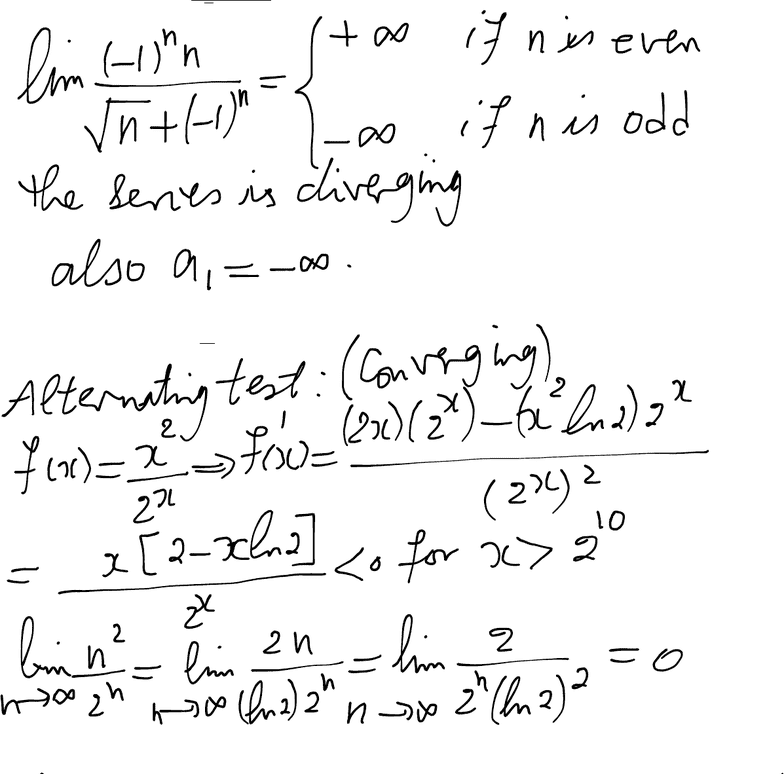 lim (-1)ⁿn / (√n+(-1)ⁿ) = { +∞ if n is even
-∞ if n is odd
the series is diverging
also a₁ = -∞.
Alternating test: (Converging)
f(x) = x²/2ˣ ⇒ f'(x) = ((2x)(2ˣ) - (x² ln 2) 2ˣ) / (2ˣ)²
= x[2-x ln 2] / 2ˣ <0 for x > 2¹⁰
lim n→∞ n²/2ⁿ = lim n→∞ 2n / ((ln 2) 2ⁿ) = lim n→∞ 2 / (2ⁿ(ln 2)²) = 0